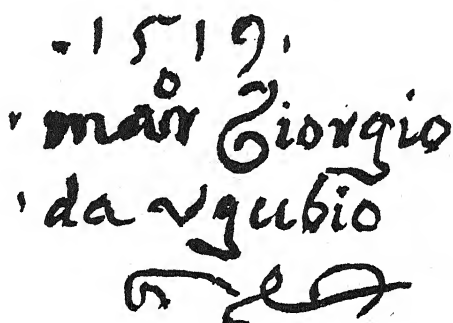 ·1519·
· mar̊ Giorgio
· da vgubio